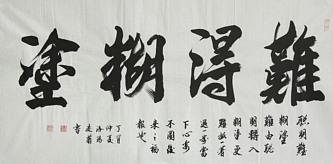 難得糊塗
聰明難
糊塗
難由聰
明轉入
糊塗更
難放一著
退一步當
下心安
不圖後
來福
報也
丁酉
仲夏
書